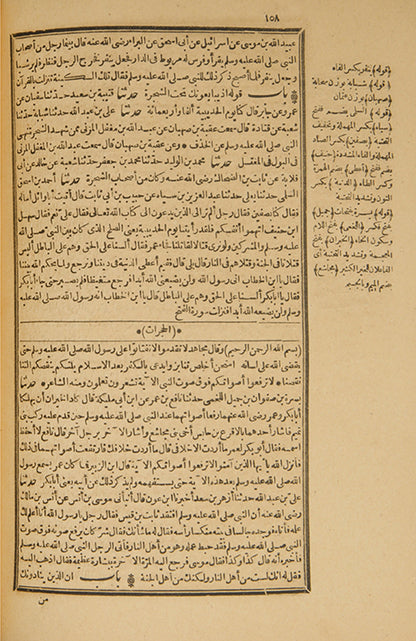 ١٥٨
عبيد الله بن موسى عن اسرائيل عن أبى اسحق عن البراء رضى الله عنه قال بينما رجل من أصحاب
النبى صلى الله عليه وسلم يقرأ وفرس له مربوط فى الدار فجعل ينفر فخرج الرجل فنظر فلم ير شيأ
وجعل ينفر فلما أصبح ذكر ذلك للنبى صلى الله عليه وسلم فقال تلك السكينة تنزلت بالقرآن
باب قوله اذ يبايعونك تحت الشجرة حدثنا قتيبة بن سعيد حدثنا سفيان عن
عمرو عن جابر قال كنا يوم الحديبية ألفا وأربعمائة حدثنا على بن عبد الله حدثنا شبابة حدثنا
شعبة عن قتادة قال سمعت عقبة بن صهبان عن عبد الله بن مغفل المزنى ممن شهد الشجرة نهى
النبى صلى الله عليه وسلم عن الخذف وعن عقبة بن صهبان قال سمعت عبد الله بن المغفل المزنى
فى البول فى المغتسل حدثنا محمد بن الوليد حدثنا محمد بن جعفر حدثنا شعبة عن خالد عن أبى
قلابة عن ثابت بن الضحاك رضى الله عنه وكان من أصحاب الشجرة حدثنا أحمد بن اسحق
السلمى حدثنا يعلى حدثنا عبد العزيز بن سياه عن حبيب بن أبى ثابت قال أتيت أبا وائل أسأله
فقال كنا بصفين فقال رجل ألم تر الى الذين يدعون الى كتاب الله تعالى فقال على نعم فقال سهل
ابن حنيف اتهموا أنفسكم فلقد رأيتنا يوم الحديبية يعنى الصلح الذى كان بين النبى صلى الله
عليه وسلم والمشركين ولو نرى قتالا لقاتلنا فجاء عمر فقال ألسنا على الحق وهم على الباطل أليس
قتلانا فى الجنة وقتلاهم فى النار قال بلى قال ففيم أعطى الدنية فى ديننا ونرجع ولما يحكم الله بيننا
فقال يا ابن الخطاب انى رسول الله ولن يضيعنى الله أبدا فرجع متغيظا فلم يصبر حتى جاء أبا بكر
فقال يا أبا بكر ألسنا على الحق وهم على الباطل قال يا ابن الخطاب انه رسول الله صلى الله عليه
وسلم ولن يضيعه الله أبدا فنزلت سورة الفتح
(الحجرات)
(بسم الله الرحمن الرحيم) وقال مجاهد لا تقدموا لا تفتاتوا على رسول الله صلى الله عليه وسلم حتى
يقضى الله على لسانه امتحن أخلص تنابزوا يدعى بالكفر بعد الاسلام يلتكم ينقصكم ألتنا
نقصنا لا ترفعوا أصواتكم فوق صوت النبى الآية تشعرون تعلمون ومنه الشاعر حدثنا
يسرة بن صفوان بن جميل اللخمى حدثنا نافع بن عمر عن ابن أبى مليكة قال كاد الخيران أن يهلكا
أبا بكر وعمر رضى الله عنهما رفعا أصواتهما عند النبى صلى الله عليه وسلم حين قدم عليه ركب بنى
تميم فأشار أحدهما بالاقرع بن حابس أخى بنى مجاشع وأشار الآخر برجل آخر قال نافع لا أحفظ
اسمه فقال أبو بكر لعمر ما أردت الا خلافى قال ما أردت خلافك فارتفعت أصواتهما فى ذلك
فأنزل الله يا أيها الذين آمنوا لا ترفعوا أصواتكم الآية قال ابن الزبير فما كان عمر يسمع رسول
الله صلى الله عليه وسلم بعد هذه الآية حتى يستفهمه ولم يذكر ذلك عن أبيه يعنى أبا بكر حدثنا
على بن عبد الله حدثنا أزهر بن سعد أخبرنا ابن عون قال أنبأنى موسى بن أنس عن أنس بن مالك
رضى الله عنه أن النبى صلى الله عليه وسلم افتقد ثابت بن قيس فقال رجل يا رسول الله أنا أعلم لك
علمه فأتاه فوجده جالسا فى بيته منكسا رأسه فقال له ما شأنك فقال شر كان يرفع صوته فوق صوت
النبى صلى الله عليه وسلم فقد حبط عمله وهو من أهل النار فأتى الرجل النبى صلى الله عليه وسلم
فأخبره أنه قال كذا وكذا فقال موسى فرجع اليه المرة الآخرة ببشارة عظيمة فقال اذهب اليه
فقل له انك لست من أهل النار ولكنك من أهل الجنة باب ان الذين ينادونك
من
(قوله) ينفر بكسر الفاء
(قوله) شبابة بوزن سحابة
(صهبان) بوزن عثمان
(قوله) السلمى بضم ففتح
(سياه) بكسر المهملة وتخفيف
التحتية (صفين) بكسر الصاد
المهملة والفاء المشددة (حنيف)
بضم ففتح (أعطى) بضم الهمزة
وكسر الطاء (الدنية) بكسر
النون وتشديد التحتية
(قوله) يسرة (جميل)
بفتح الجيم (اللخمى) بفتح اللام
وسكون الخاء (الخيران) بفتح
المعجمة وتشديد التحتية أى
الفاعلان للخير الكثير (مجاشع)
بضم الميم وبالجيم